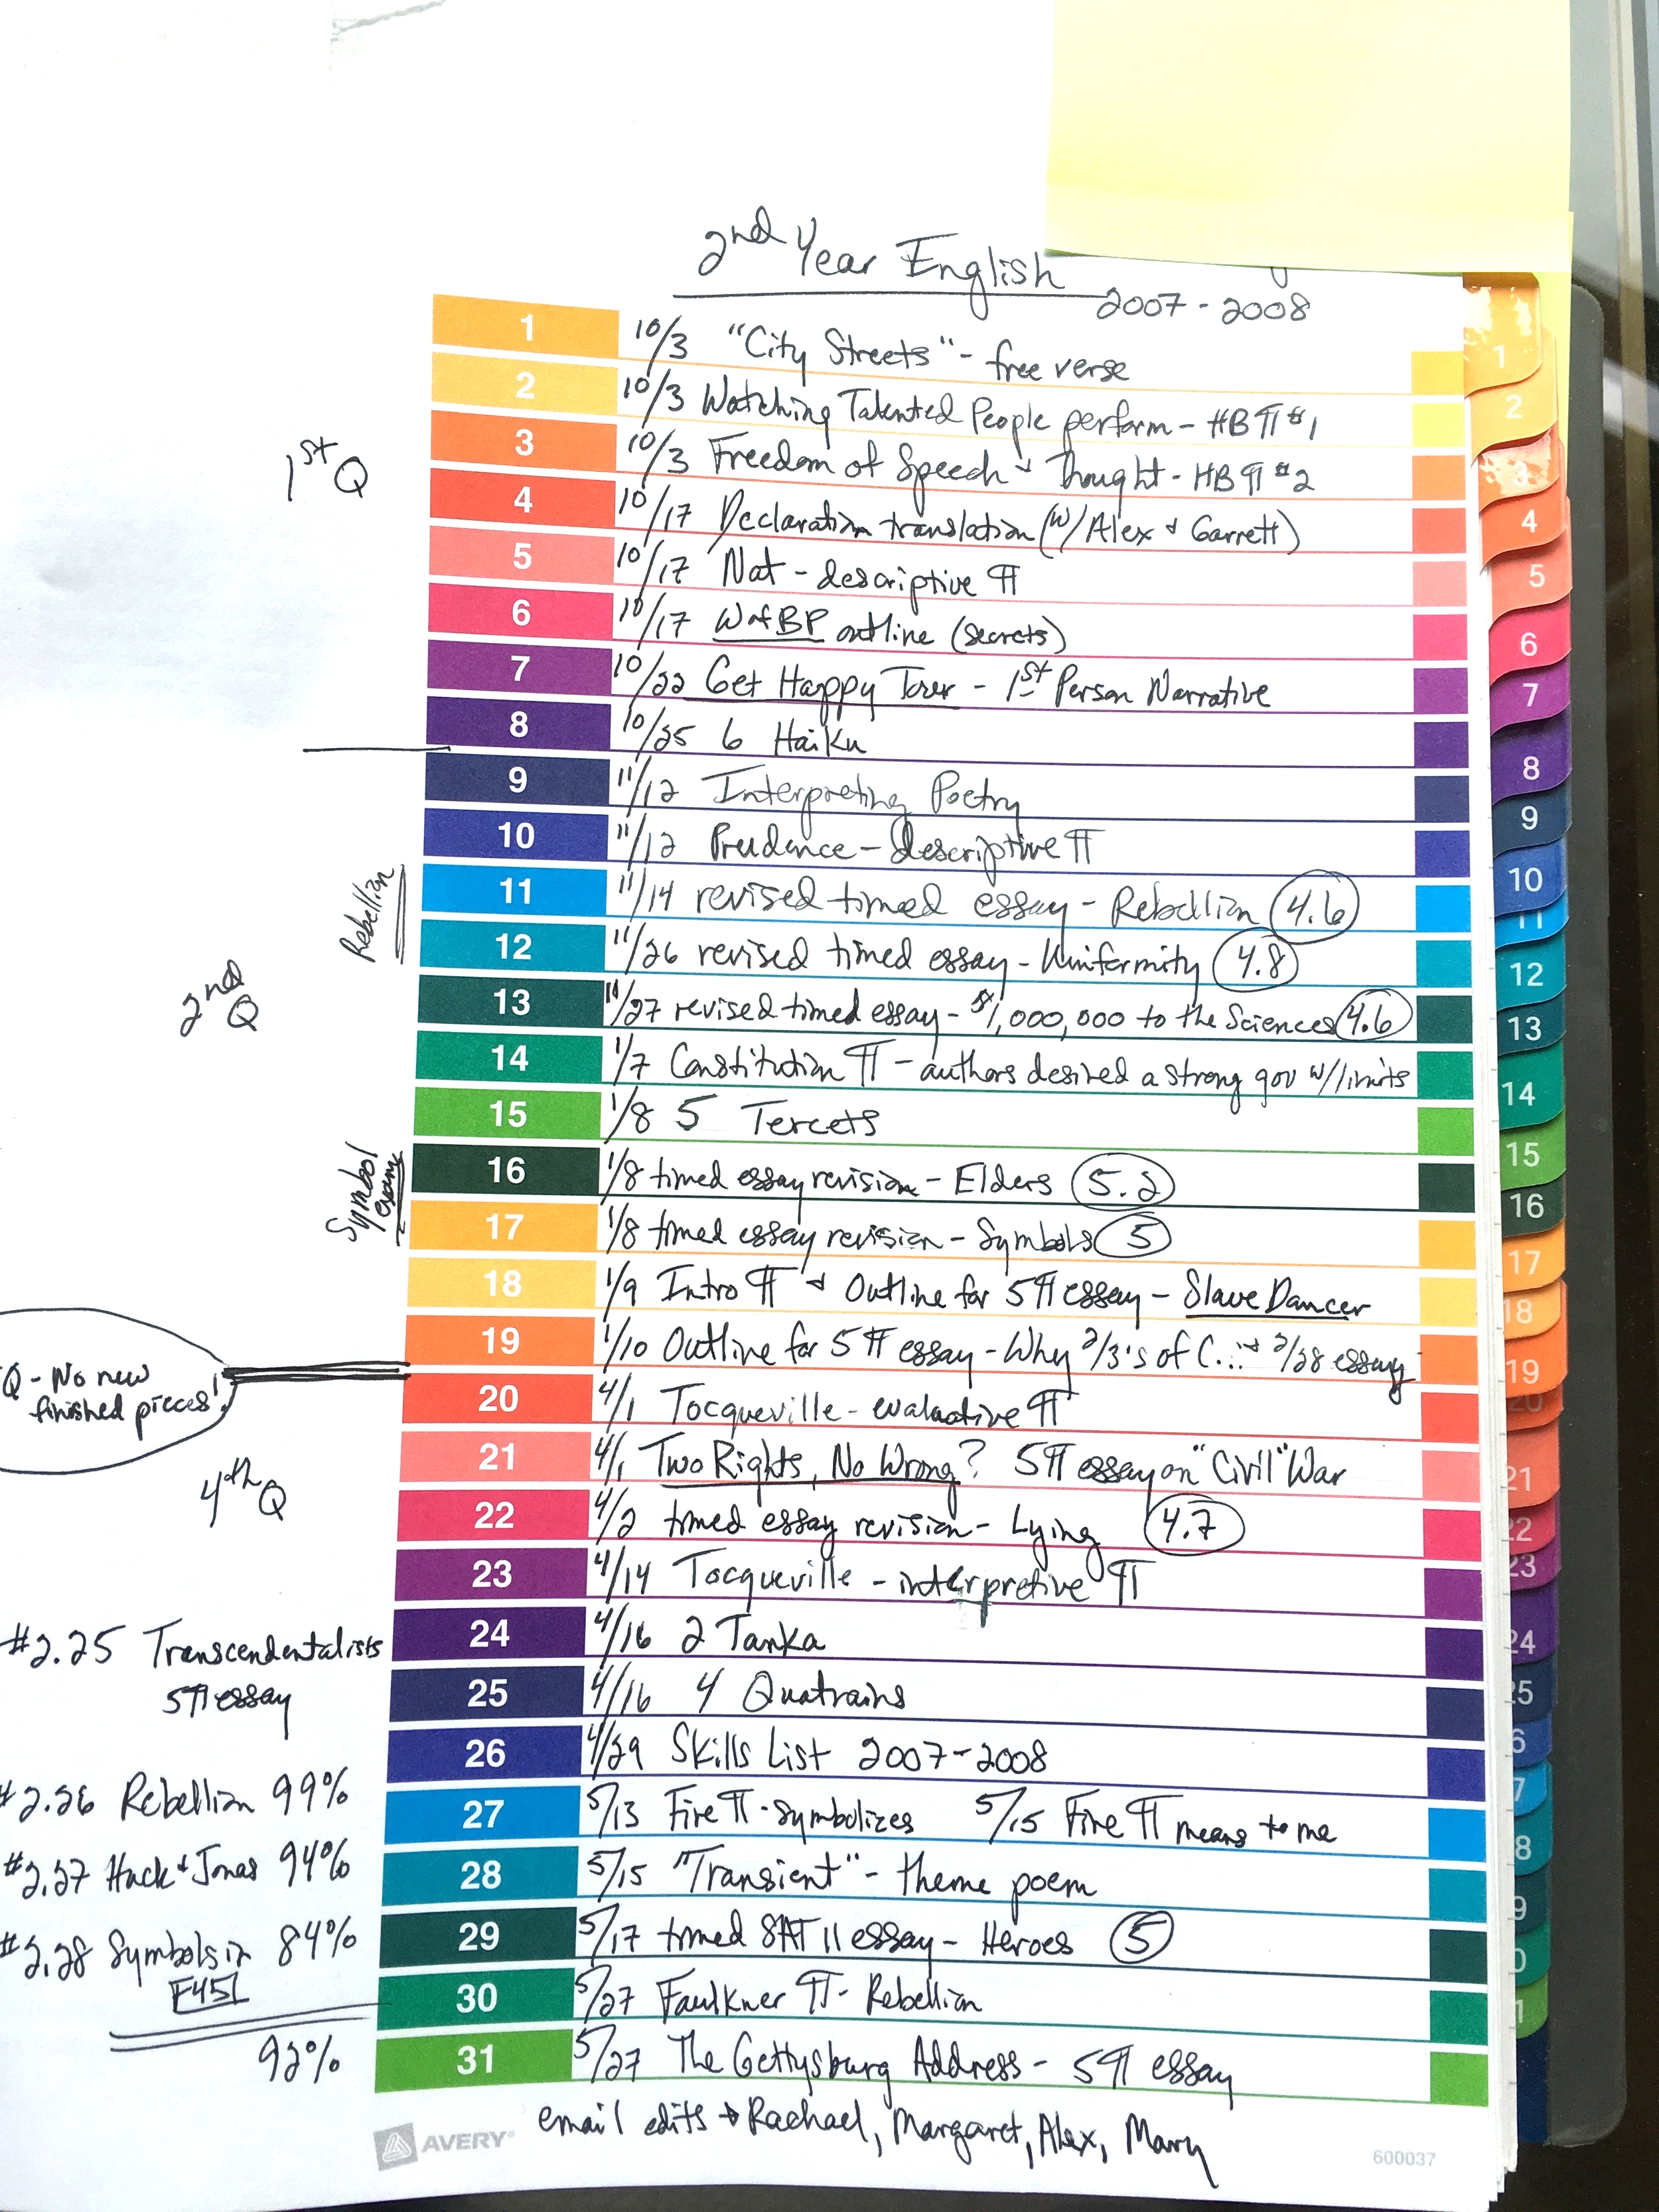 2nd Year English
2007-2008
1st Q
1 10/3 "City Streets" - free verse
2 10/3 Watching Talented People perform - HB ¶ #1
3 10/3 Freedom of Speech & Thought - HB ¶ #2
4 10/17 Declaration translation (w/ Alex & Garrett)
5 10/17 Nat - descriptive ¶
6 10/17 WofBP outline (secrets)
7 10/22 Get Happy Tower - 1st Person Narrative
8 10/25 6 Haiku
2nd Q
9 11/12 Interpreting Poetry
10 11/12 Prudence - descriptive ¶
Rebellion
11 11/14 revised timed essay - Rebellion 4.6
12 11/26 revised timed essay - Uniformity 4.8
13 11/27 revised timed essay - $1,000,000 to the Sciences 4.6
14 1/7 Constitution ¶ - authors desired a strong gov w/ limits
15 1/8 5 Tercets
Symbol
essays
16 1/8 timed essay revision - Elders 5.2
17 1/8 timed essay revision - Symbols 5
18 1/9 Intro ¶ & Outline for 5¶ essay - Slave Dancer
19 1/10 Outline for 5 ¶ essay - Why 2/3's of C... & 2/28 essay
Q - No new
finished pieces!
4th Q
20 4/1 Tocqueville - evaluative ¶
21 4/1 Two Rights, No Wrong? 5¶ essay on "Civil" War
22 4/2 timed essay revision - Lying 4.7
23 4/14 Tocqueville - interpretive ¶
24 4/16 2 Tanka
25 4/16 4 Quatrains
26 4/29 Skills List 2007-2008
27 5/13 Fire ¶ - symbolizes 5/15 Fire ¶ means to me
28 5/15 "Transient" - theme poem
29 5/17 timed SAT II essay - Heroes 5
30 5/27 Faulkner ¶ - Rebellion
31 5/27 The Gettysburg Address - 5¶ essay
#2.25 Transcendentalists
5¶ essay
#2.26 Rebellion 99%
#2.27 Huck & Jonas 94%
#2.28 Symbols in 84%
F451
92%
email edits → Rachael, Margaret, Alex, Mary
AVERY
600037
1
2
3
4
5
6
7
8
9
10
11
12
13
14
15
16
17
18
19
20
21
22
23
24
25
6
7
8
9
0
1